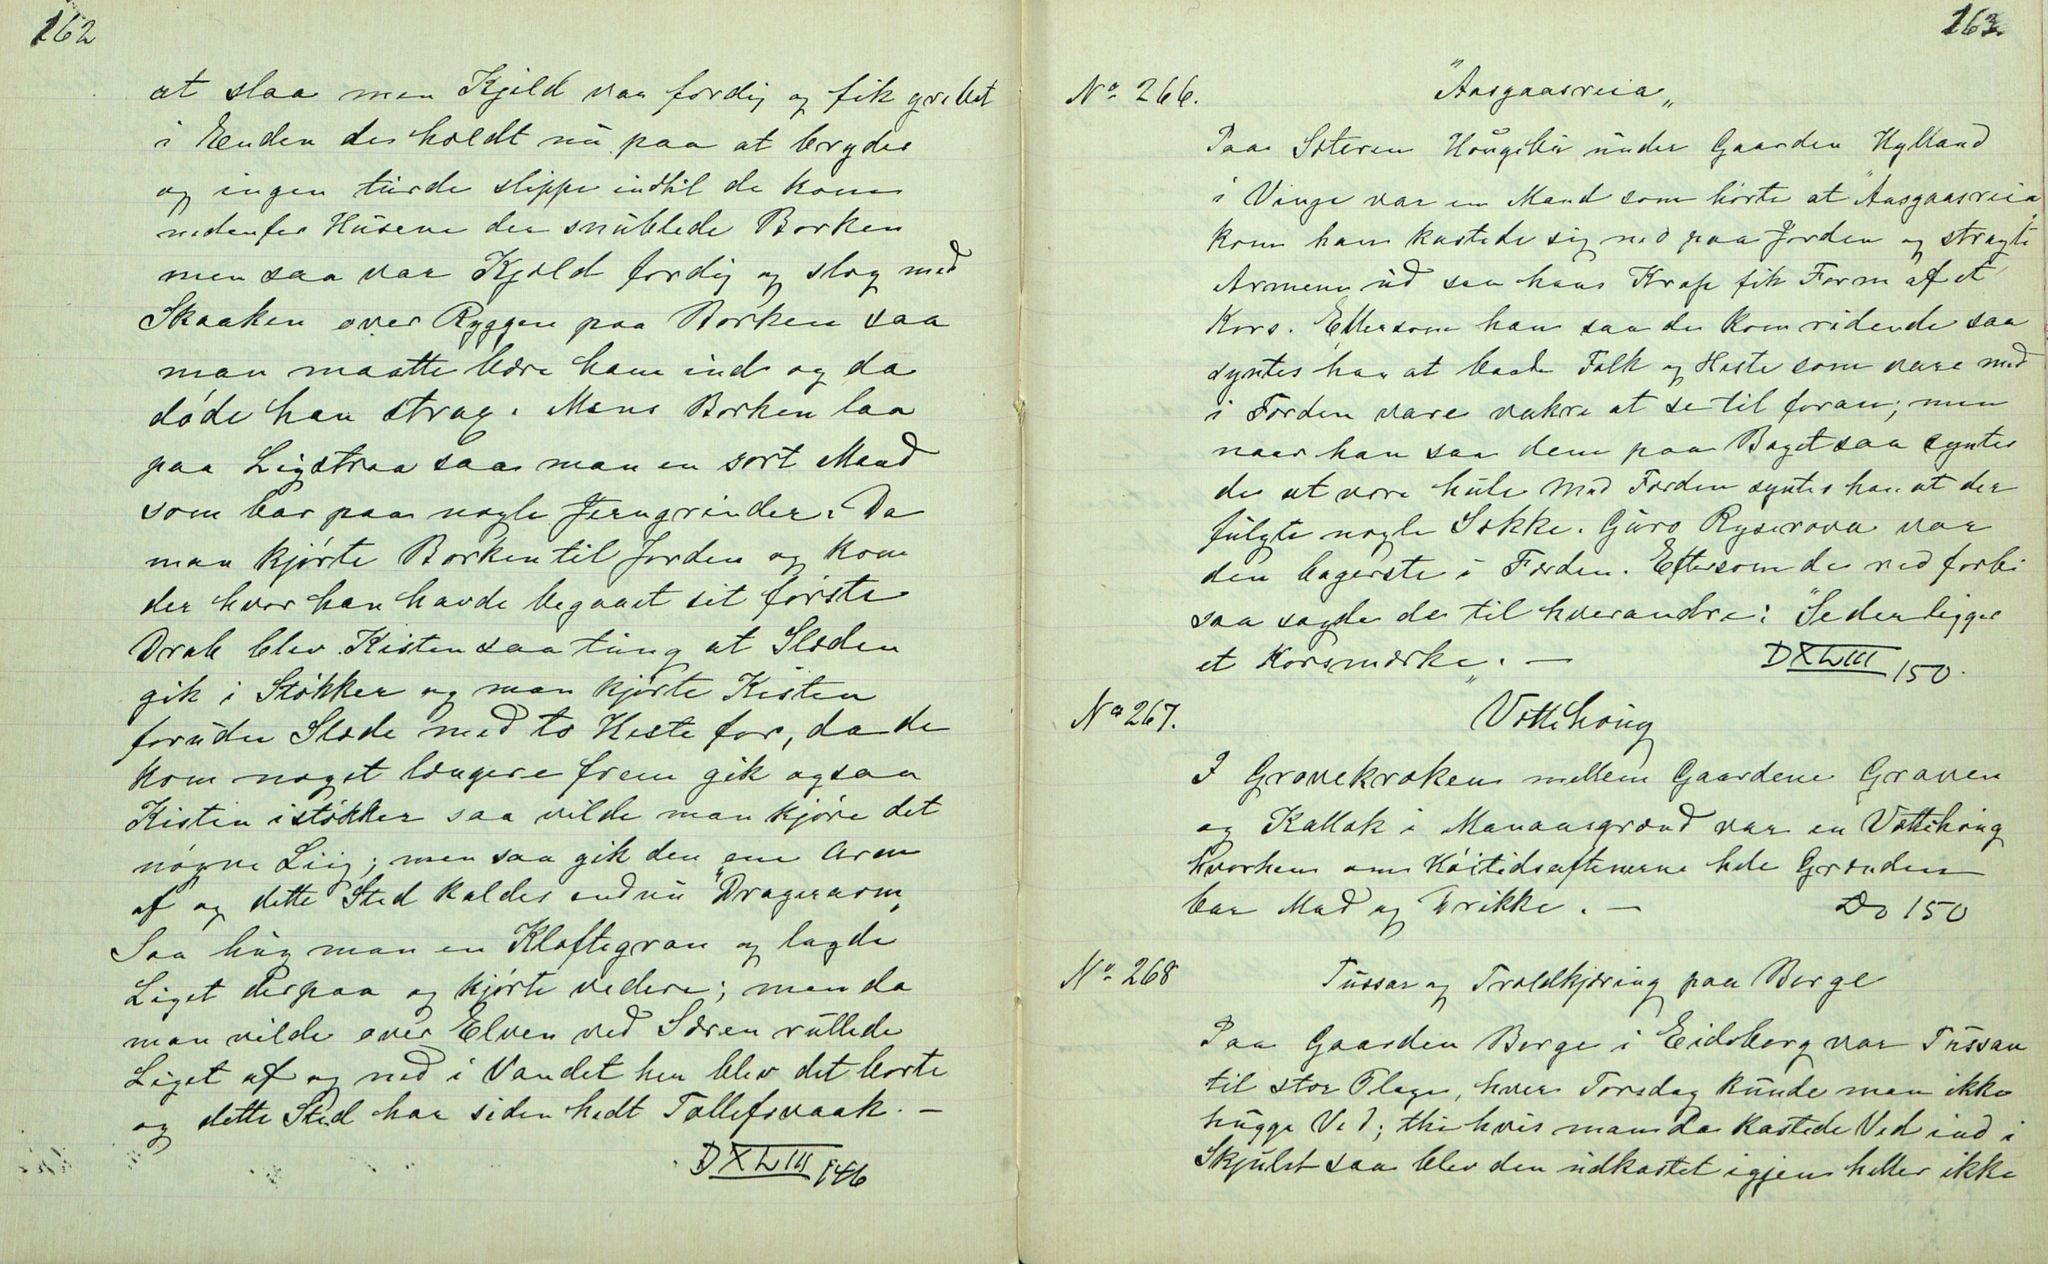 162
at slaa men Kjeld var færdig og fik grebet
i Enden de holdt nu paa at brydes
og ingen turde slippe indtil de kom
nedenfor Husene der snublede Borken
men saa var Kjeld færdig og slog med
Skaaken over Ryggen paa Borken saa
man maatte bære ham ind og da
døde han strax. Mens Borken laa
paa Ligstraa saa man en sort Mand
som bar paa nogle Jerngrinder. Da
man kjørte Borken til Jorden og kom
der hvor han havde begaaet sit første
Drab blev Kisten saa tung at Slæden
gik i Støkker og man kjørte Kisten
foruden Slæde med to Heste for, da de
kom noget længere frem gik ogsaa
Kisten istøkker saa vilde man kjøre det
nøgne Liig; men saa gik den ene Arm
af og dette Sted kaldes endnu "Dragerarm„
Saa hug man en Kløftegran og lagde
Liget derpaa og kjørte videre; men da
man vilde over Elven ved Særen rullede
Liget af og ned i Vandet her blev det borte
og dette Sted har siden hedt Tallefsvaak. —
DXLIII 146
163.
No 266. "Aasgaasreia„
Paa Sæteren Høugebu under Gaarden Hylland
i Vinge var en Mand som hørte at "Aasgaasreia„
kom han kastede sig ned paa Jorden og stragte
Armene ud saa hans Krop fik Form af et
Kors. Eftersom han saa de kom ridende saa
syntes han at baade Folk og Heste som vare med
i Færden vare vakre at se til foran; men
naar han saa dem paa Baget saa syntes
de at være hule Med Færden syntes han at der
fulgte nogle Sække. Guro Ryserova var
den bagerste i Færden. Eftersom de red forbi
saa sagde de til hverandre: "Se der ligger
et Korsmærke„. — DXLIII 150.
No 267. Vættehoug
I Gravekroken mellem Gaardene Graven
og Kallak i Manaasgrænd var en Vættehoug
hvorhen om Høitidsaftenerne hele Grænden
bar Mad og Drikke. — Do 150
No 268 Tussar og Troldkjæring paa Berge
Paa Gaarden Berge i Eidsborg var Tussan
til stor Plage, hver Torsdag kunde man ikke
hugge Ved; thi hvis man da kastede Ved ind i
Skjulet saa blev den udkastet igjen heller ikke